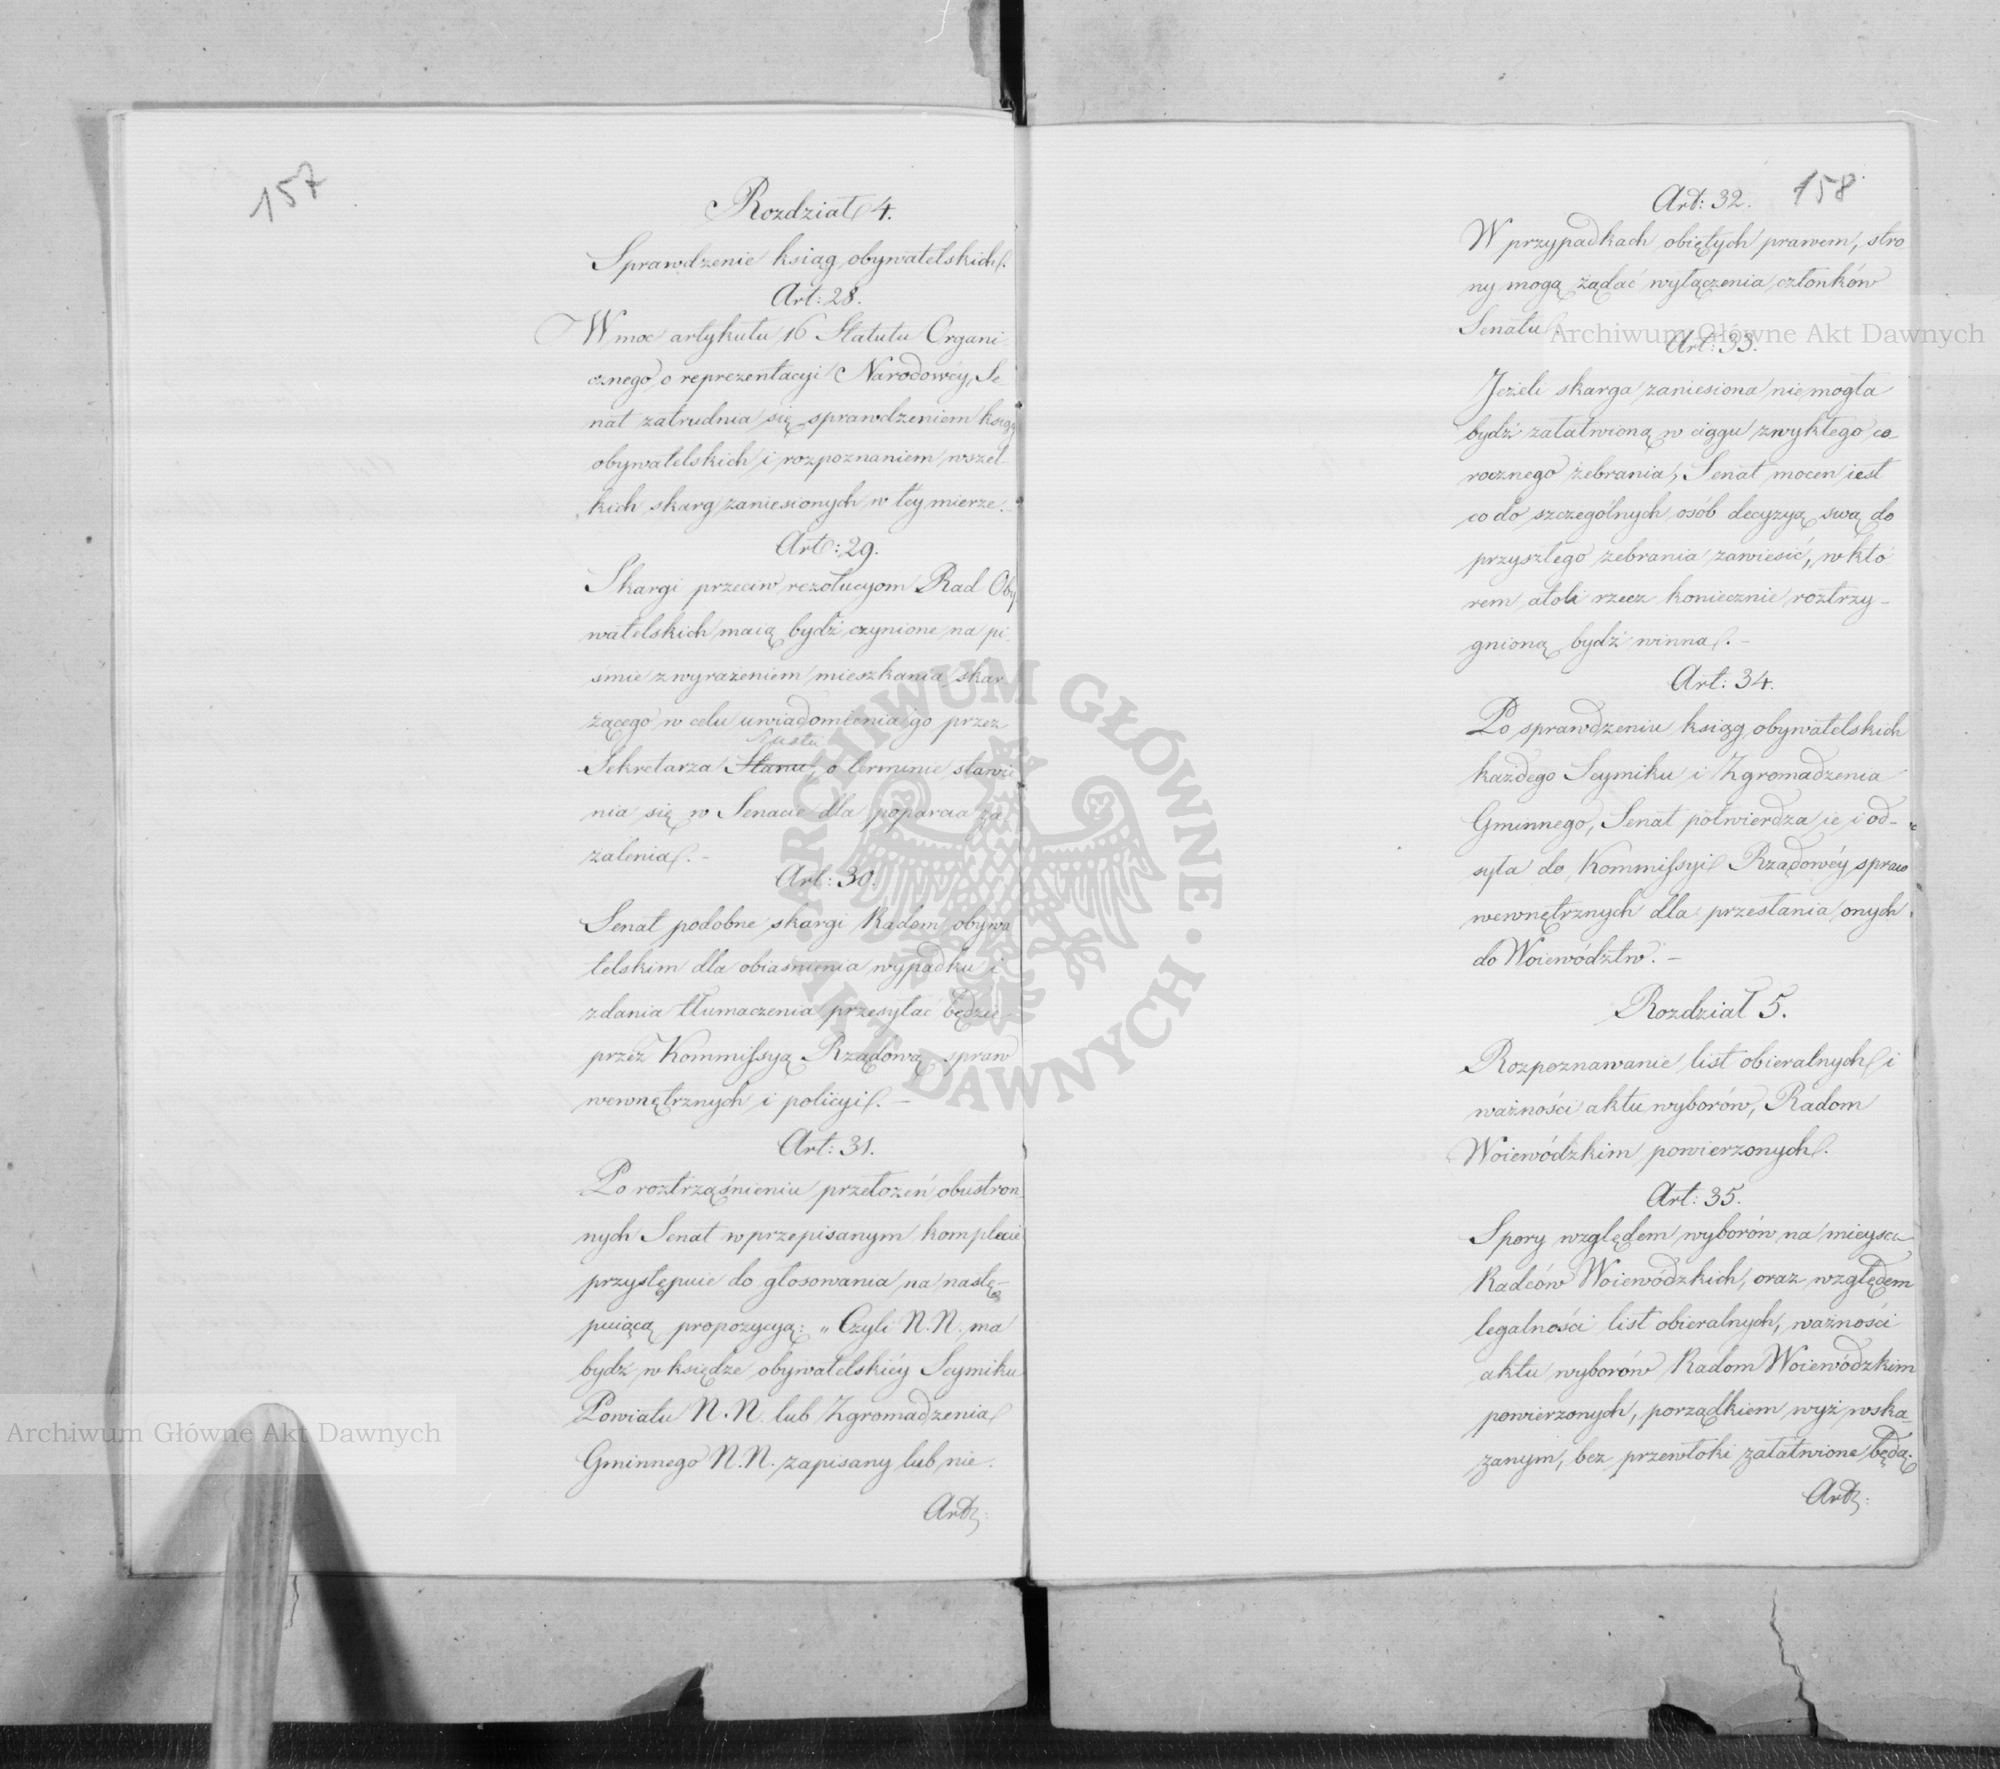 157
Rozdział 4.
Sprawdzenie ksiąg obywatelskich.
Art: 28.
W moc artykułu 16 Statutu Organi
cznego o reprezentacyi Narodowéy, Se
nat zatrudnia się sprawdzeniem ksiąg
obywatelskich i rozpoznaniem wszel-
kich skarg zaniesionych w téy mierze.-
Art: 29.
Skargi przeciw rezolucyom Rad Oby
watelskich maią bydź czynione na pi-
śmie z wyrażeniem mieszkania skar
żącego w celu uwiadomienia go przez
Sekretarza Stanu, o terminie stawie
nia się w Senacie dla poparcia za
żalenia.-
Art: 30.
Senat podobne skargi Radom obywa
telskim dla obiaśnienia wypadku i
zdania tłumaczenia przesyłać będzie
przez Kommissyą Rządową spraw
wewnętrznych i policyi.-
Art: 31.
Po roztrząśnieniu przełożeń obustron
nych Senat w przepisanym komplecie
przystępuie do głosowania na nastę-
puiącą propozycyą: „Czyli N.N. ma
bydź w księdze obywatelskiéy Seymiku
Powiatu N.N. lub Zgromadzenia
Gminnego N.N. zapisany lub nie.
Art:
158
Art: 32.
W przypadkach obiętych prawem, stro
ny mogą żądać wyłączenia członków
Senatu.
Art: 33.
Jeżeli skarga zaniesiona nie mogła
bydź załatwioną w ciągu zwykłego co
rocznego zebrania, Senat mocen iest
co do szczególnych osób decyzyą swą do
przyszłego zebrania zawiesić, w któ
rem atoli rzecz koniecznie roztrzy-
gnioną bydź winna.-
Art: 34.
Po sprawdzeniu ksiąg obywatelskich
każdego Seymiku i Zgromadzenia
Gminnego, Senat potwierdza ie i od-
syła do Kommissyi Rządowéy spraw
wewnętrznych dla przesłania onych
do Woiewództw.-
Rozdział 5.
Rozpoznawanie list obieralnych i
ważności aktu wyborów, Radom
Woiewódzkim powierzonych.
Art: 35.
Spory względem wyborów na mieysca
Radców Woiewódzkich, oraz względem
legalności list obieralnych, ważności
aktu wyborów Radom Woiewódzkim
powierzonych, porządkiem wyż wska
zanym, bez przewłoki załatwione będą.
Art:
Archiwum Główne Akt Dawnych
Archiwum Główne Akt Dawnych
ARCHIWUM GŁÓWNE · AKT DAWNYCH ·